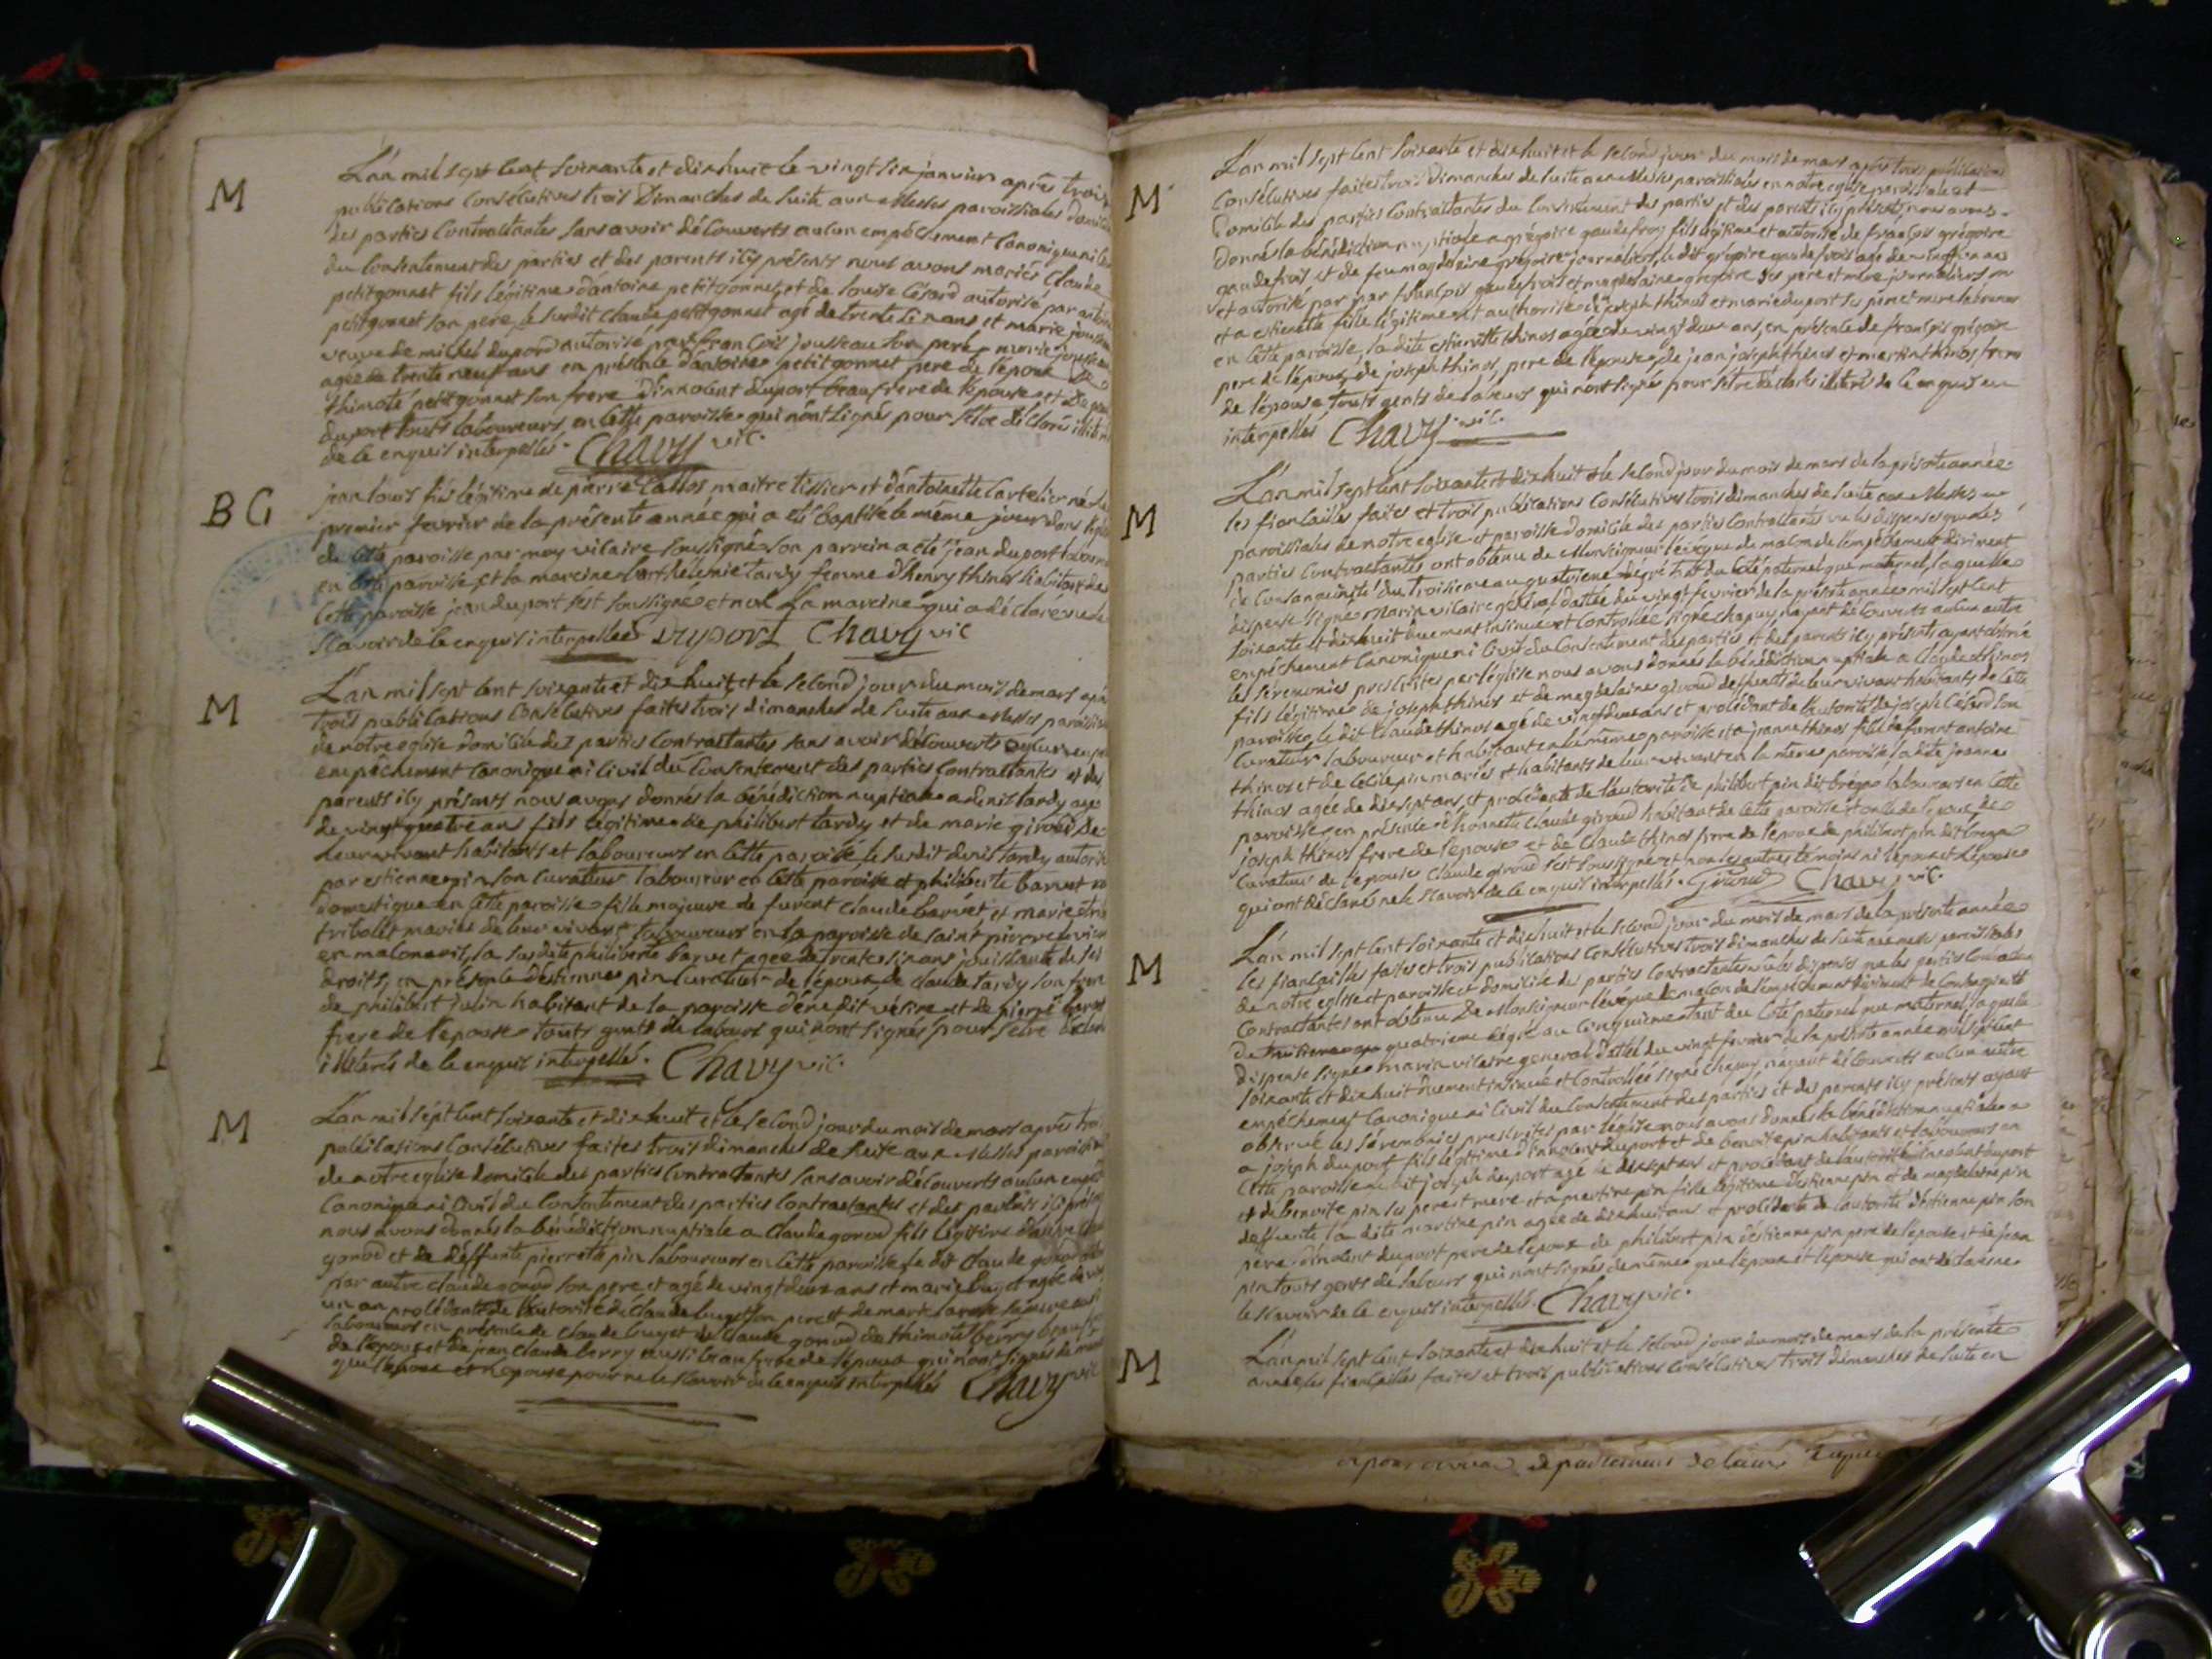 M
L'an mil sept cent soixante et dix huit le vingt six janvier après trois
publications consécutives trois dimanches de suite aux messes paroissiales
des parties contractantes sans avoir découverts aucun empêchement canonique ni
du consentement des parties et des parents icy présents nous avons mariés Claude
petitgonnet fils légitime d'antoine petitgonnet et de louise Césard autorisé par antoine
petitgonnet son pere, le susdit claude petitgonnet agé de trente six ans et marie
veuve de michel duport autorisé par françois jousseau son pere, marie
agée de trente neuf ans en présence d'antoine petitgonnet pere de l'époux de
thimoté petitgonnet son frere d'innocent duport beaufrere de l'épouse et de
duport touts laboureurs en cette paroisse qui n'ont signés pour s'être déclarés
de ce enquis interpellés Chavy vic.
BG
jean louis fils légitime de pierre maitre tissier et d'antoinette Cartelier né le
premier fevrier de la présente année qui a été baptisé le meme jour dans
de cette paroisse par moy vicaire soussigné son parrein a été jean duport
en cette paroisse et la mareine barthelemie tardy femme d'henry thinos habitant de
cette paroisse jean duport s'est soussigné et non la mareine qui a déclaré ne le
scavoir de ce enquis interpellée Duport Chavy vic
M
L'an mil sept cent soixante et dix huit et le second jour du mois de mars
trois publications consécutives faites trois dimanches de suite aux messes
de notre eglise domicile des parties contractantes sans avoir découverts
empêchement canonique ni civil du consentement des parties contractantes et des
parents icy présents nous avons donnés la bénédiction nuptiale a denis tardy agé
de vingt quatre ans fils légitime de philibert tardy et de marie giroud de
leur vivant habitants et laboureurs en cette paroisse, le susdit denis tardy autorisé
par estienne pin son curateur laboureur en cette paroisse et philiberte barvet
domestique en cette paroisse fille majeure de furent claude barvet et marie
tribollet mariés de leur vivant laboureurs en la paroisse de saint pierre
en maconnois, la susdite philiberte barvet agée de trente six ans jouissante de ses
droits, en présence d'estienne pin curateur de l'époux de claude tardy son frere
de philibert julin habitant de la paroisse et de pierre barvet
frere de l'épouse touts gents de labeurs qui n'ont signés pour s'être
illiterés de ce enquis interpellés. Chavy vic.
M
L'an mil sept cent soixante et dix huit et le second jour du mois de mars après
publications consécutives faites trois dimanches de suite aux messes
de notre eglise domicile des parties contractantes sans avoir découverts aucun
canonique ni civil du consentement des parties contractantes et des parents icy
nous avons donnés la bénédiction nuptiale a claude gonod fils légitime
gonod et de deffunte pierrette pin laboureurs en cette paroisse, le dit claude gonod
par autre claude gonod son pere et agé de vingt deux ans et marie buget agée de
un an procédante de l'autorité de claude buget son pere et de marie
laboureurs en présence de claude buget de claude gonod de thimoté berry
de l'époux et de jean claude berry aussi beaufrere de l'époux qui n'ont signés de
que l'époux et l'épouse pour ne le scavoir de ce enquis interpellés Chavy vic
M
L'an mil sept cent soixante et dix huit et le second jour du mois de mars après trois publications
consécutives faites trois dimanches de suite aux messes paroissiales en notre eglise paroissiale et
domicile des parties contractantes du consentement des parties et des parents icy présents, nous avons
donnés la bénédiction nuptiale a grégoire gaudefroy fils légitime et autorisé de françois grégoire
gaudefrois et de feu magdelaine grégoire journaliers, le dit grégoire gaudefrois agé de
et autorisé par par françois gaudefrois et magdelaine grégoire ses pere et mere journaliers
et a estiennette fille légitime et authorisée de joseph thinos et marie duport ses pere et mere
en cette paroisse, la dite estiennette thinos agée de vingt deux ans, en présence de françois grégoire
pere de l'époux, de joseph thinos, pere de l'épouse, de jean joseph thinos et martin thinos freres
de l'épouse touts gents de labeurs qui n'ont signés pour s'être déclarés illiterés de ce enquis
interpellés Chavy vic.
M
L'an mil sept cent soixante et dix huit et le second jour du mois de mars de la présente année
les fiançailles faites et trois publications consécutives trois dimanches de suite aux messes
paroissiales de notre eglise et paroisse domicile des parties contractantes vu les dispenses que les
parties contractantes ont obtenu de monseigneur l'évêque de macon de l'empêchement dirimant
de consanguinité du troisieme au quatrieme dégré tant du côté paternel que maternel, laquelle
dispense signée Marin vicaire général dattée du vingt fevrier de la présente année mil sept cent
soixante et dix huit duement insinuée et controllée signé chapuy, n'ayant découverts aucun autre
empêchement canonique ni civil du consentement des parties et des parents icy présents ayant observé
les séremonies prescrites par l'église nous avons donnés la bénédiction nuptiale a claude thinos
fils légitime de joseph thinos et de magdelaine giroud deffunts de leur vivant habitants de cette
paroisse, le dit claude thinos agé de vingt deux ans et procédant de l'autorité de joseph Césard son
curateur laboureur et habitant en la même paroisse et a jeanne thinos fille de furent antoine
thinos et de cécile pin mariés et habitants de leur vivant en la même paroisse, la dite jeanne
thinos agée de dix sept ans, et procédante de l'autorité de philibert pin dit laboureur en cette
paroisse, en présence d'honnette claude giroud habitant de cette paroisse et oncle de l'époux, de
joseph thinos frere de l'épouse et de claude thinos frere de l'époux de philibert pin dit
curateur de l'épouse claude giroud s'est soussigné et non les autres témoins ni l'époux et l'épouse
qui ont déclarés ne le scavoir de ce enquis interpellés. Giroud Chavy vic.
M
L'an mil sept cent soixante et dix huit et le second jour du mois de mars de la présente année
les fiançailles faites et trois publications consécutives trois dimanches de suite aux messes paroissiales
de notre eglise et paroisse et domicile des parties contractantes vu les dispenses que les parties
contractantes ont obtenu de monseigneur l'évêque de macon de l'empêchement dirimant de consanguinité
du quatrieme dégré au cinquieme tant du côté paternel que maternel, laquelle
dispense signée marin vicaire general dattée du vingt fevrier de la présente année mil sept cent
soixante et dix huit duement insinuée et controllée signé chapuy, n'ayant découverts aucun autre
empêchement canonique ni civil du consentement des parties et des parents icy présents ayant
observé les séremonies prescrites par l'église nous avons donnés la bénédiction nuptiale
a joseph duport fils légitime d'innocent duport et de benoite pin habitants et laboureurs en
cette paroisse le dit joseph duport agé de dix sept ans et procédant de l'autorité d'innocent duport
et de benoite pin ses pere et mere et a martine pin fille légitime d'estienne pin et de magdelaine pin
deffunte la dite martine pin agée de dix huit ans et procédante de l'autorité d'estienne pin son
pere d'innocent duport pere de l'époux de philibert pin d'estienne pin pere de l'épouse et de jean
pin touts gents de labeurs qui n'ont signés de même que l'époux et l'épouse qui ont déclarés ne
le scavoir de ce enquis interpellés. Chavy vic.
M
L'an mil sept cent soixante et dix huit et le second jour du mois de mars de la présente
année, les fiançailles faites et trois publications consécutives trois dimanches de suite en